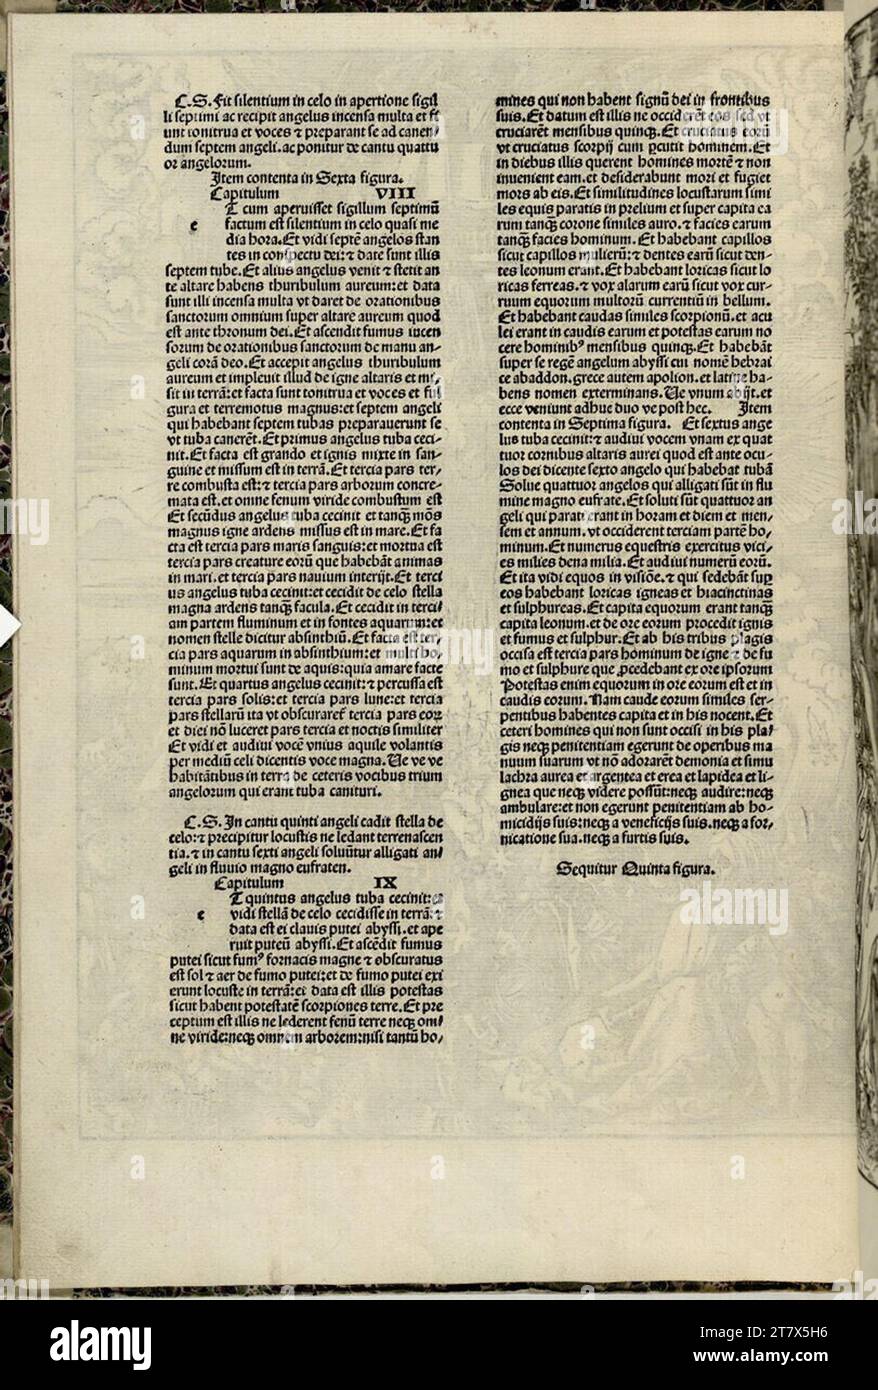 C.S. Fit silentium in celo in apertione sigil
li septimi ac recipit angelus incensa multa et fi
unt tonitrua et voces ⁊ preparant se ad canen/
dum septem angeli. ac ponitur de cantu quattu
or angelorum.
Item contenta in Sexta figura.
Capitulum VIII
e T cum aperuisset sigillum septimū
factum est silentium in celo quasi me
dia hora. Et vidi septē angelos stan
tes in conspectu dei: ⁊ date sunt illis
septem tube. Et alius angelus venit ⁊ stetit an
te altare habens thuribulum aureum: et data
sunt illi incensa multa vt daret de orationibus
sanctorum omnium super altare aureum quod
est ante thronum dei. Et ascendit fumus incen
sorum de orationibus sanctorum de manu an-
geli corā deo. Et accepit angelus thuribulum
aureum et impleuit illud de igne altaris et mi/
sit in terrā: et facta sunt tonitrua et voces et ful
gura et terremotus magnus: et septem angeli
qui habebant septem tubas preparauerunt se
vt tuba canerēt. Et primus angelus tuba ceci-
nit. Et facta est grando et ignis mixte in san-
guine et missum est in terrā. Et tercia pars ter/
re combusta est: ⁊ tercia pars arborum concre-
mata est. et omne fenum viride combustum est
Et secūdus angelus tuba cecinit et tanqꝫ mōs
magnus igne ardens missus est in mare. Et fa
cta est tercia pars maris sanguis: et mortua est
tercia pars creature eorū que habebāt animas
in mari. et tercia pars nauium interijt. Et terci
us angelus tuba cecinit: et cecidit de celo stella
magna ardens tanqꝫ facula. Et cecidit in terci/
am partem fluminum et in fontes aquarum: et
nomen stelle dicitur absinthiū. Et facta est ter/
cia pars aquarum in absinthium: et multi ho/
minum mortui sunt de aquis: quia amare facte
sunt. Et quartus angelus cecinit: ⁊ percussa est
tercia pars solis: et tercia pars lune: et tercia
pars stellarū ita vt obscuraret᷑ tercia pars eoꝝ
et diei nō luceret pars tercia et noctis similiter
Et vidi et audiui vocē vnius aquile volantis
per mediū celi dicentis voce magna. Ve ve ve
habitātibus in terra de ceteris vocibus trium
angelorum qui erant tuba canituri.
C.S. In cantu quinti angeli cadit stella de
celo: ⁊ precipitur locustis ne ledant terrenascen
tia. ⁊ in cantu sexti angeli soluūtur alligati an/
geli in fluuio magno eufraten.
Capitulum IX
e T quintus angelus tuba cecinit: et
vidi stellā de celo cecidisse in terrā: ⁊
data est ei clauis putei abyssi. et ape
ruit puteū abyssi. Et ascēdit fumus
putei sicut fumꝰ fornacis magne ⁊ obscuratus
est sol ⁊ aer de fumo putei: et de fumo putei exi
erunt locuste in terrā: et data est illis potestas
sicut habent potestatē scorpiones terre. Et pre
ceptum est illis ne lederent fenū terre neqꝫ om/
ne viride: neqꝫ omnem arborem: nisi tantū ho/
mines qui non habent signū dei in frontibus
suis. Et datum est illis ne occiderēt eos sed vt
cruciarēt mensibus quinqꝫ. Et cruciatus eorū
vt cruciatus scorpij cum ꝑcutit hominem. Et
in diebus illis querent homines mortē ⁊ non
inuenient eam. et desiderabunt mori et fugiet
mors ab eis. Et similitudines locustarum simi
les equis paratis in prelium et super capita ea
rum tanqꝫ corone similes auro. ⁊ facies earum
tanqꝫ facies hominum. Et habebant capillos
sicut capillos mulierū: ⁊ dentes earū sicut den-
tes leonum erant. Et habebant loricas sicut lo
ricas ferreas. ⁊ vox alarum earū sicut vox cur-
ruum equorum multorū currentiū in bellum.
Et habebant caudas similes scorpionū. et acu
lei erant in caudis earum et potestas earum no
cere hominibꝰ mensibus quinqꝫ. Et habebāt
super se regē angelum abyssi cui nomē hebrai
ce abaddon. grece autem apolion. et latine ha-
bens nomen exterminans. Ve vnum abijt. et
ecce veniunt adhuc duo ve post hec. Item
contenta in Septima figura. Et sextus ange
lus tuba cecinit: ⁊ audiui vocem vnam ex quat
tuor cornibus altaris aurei quod est ante ocu-
los dei dicente sexto angelo qui habebat tubā
Solue quattuor angelos qui alligati sūt in flu
mine magno eufrate. Et soluti sūt quattuor an
geli qui parati erant in horam et diem et men/
sem et annum. vt occiderent terciam partē ho/
minum. Et numerus equestris exercitus vici/
es milies dena milia. Et audiui numerū eorū.
Et ita vidi equos in visiōe. ⁊ qui sedebāt suꝑ
eos habebant loricas igneas et hiacinctinas
et sulphureas. Et capita equorum erant tanqꝫ
capita leonum. et de ore eorum procedit ignis
et fumus et sulphur. Et ab his tribus plagis
occisa est tercia pars hominum de igne ⁊ de fu
mo et sulphure que ꝓcedebant ex ore ipsorum
Potestas enim equorum in ore eorum est et in
caudis eorum. Nam caude eorum similes ser-
pentibus habentes capita et in his nocent. Et
ceteri homines qui non sunt occisi in his pla/
gis neqꝫ penitentiam egerunt de operibus ma
nuum suarum vt nō adorarēt demonia et simu
lachra aurea et argentea et erea et lapidea et li-
gnea que neqꝫ videre possūt: neqꝫ audire: neqꝫ
ambulare: et non egerunt penitentiam ab ho-
micidijs suis: neqꝫ a veneficijs suis. neqꝫ a for/
nicatione sua. neqꝫ a furtis suis.
Sequitur Quinta figura.
alamy
Image ID: 2T7X5H6
www.alamy.com